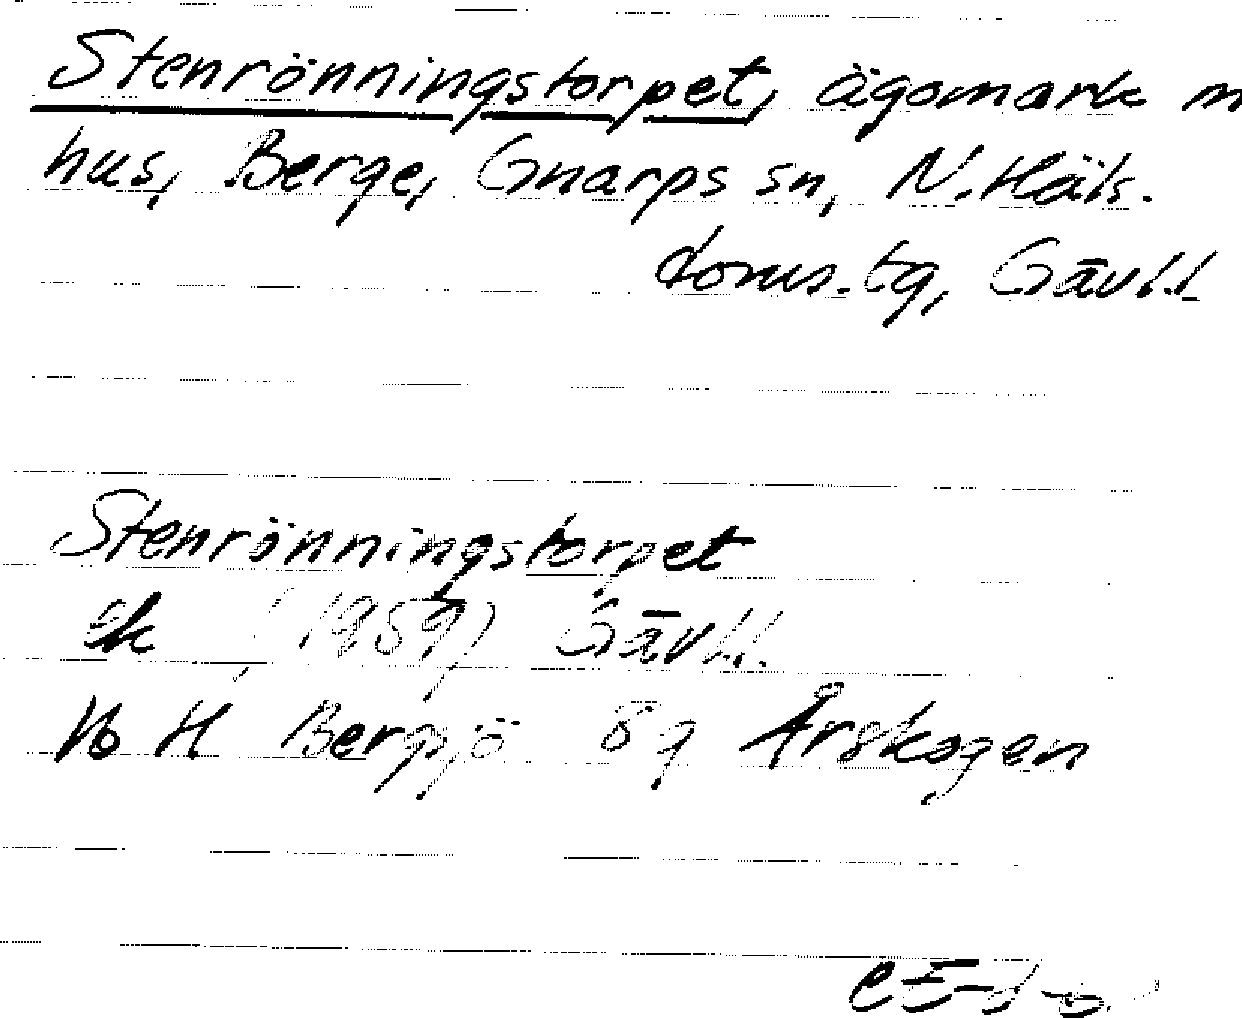 Stenrönningstorpet, ägomark m
hus, Berge, Gnarps sn, N. Häls.
doms. tg, Gävl.l.
Stenrönningstorpet
ek (1959) Gävl.l.
16 H Bergsjö 8 g Årskogen